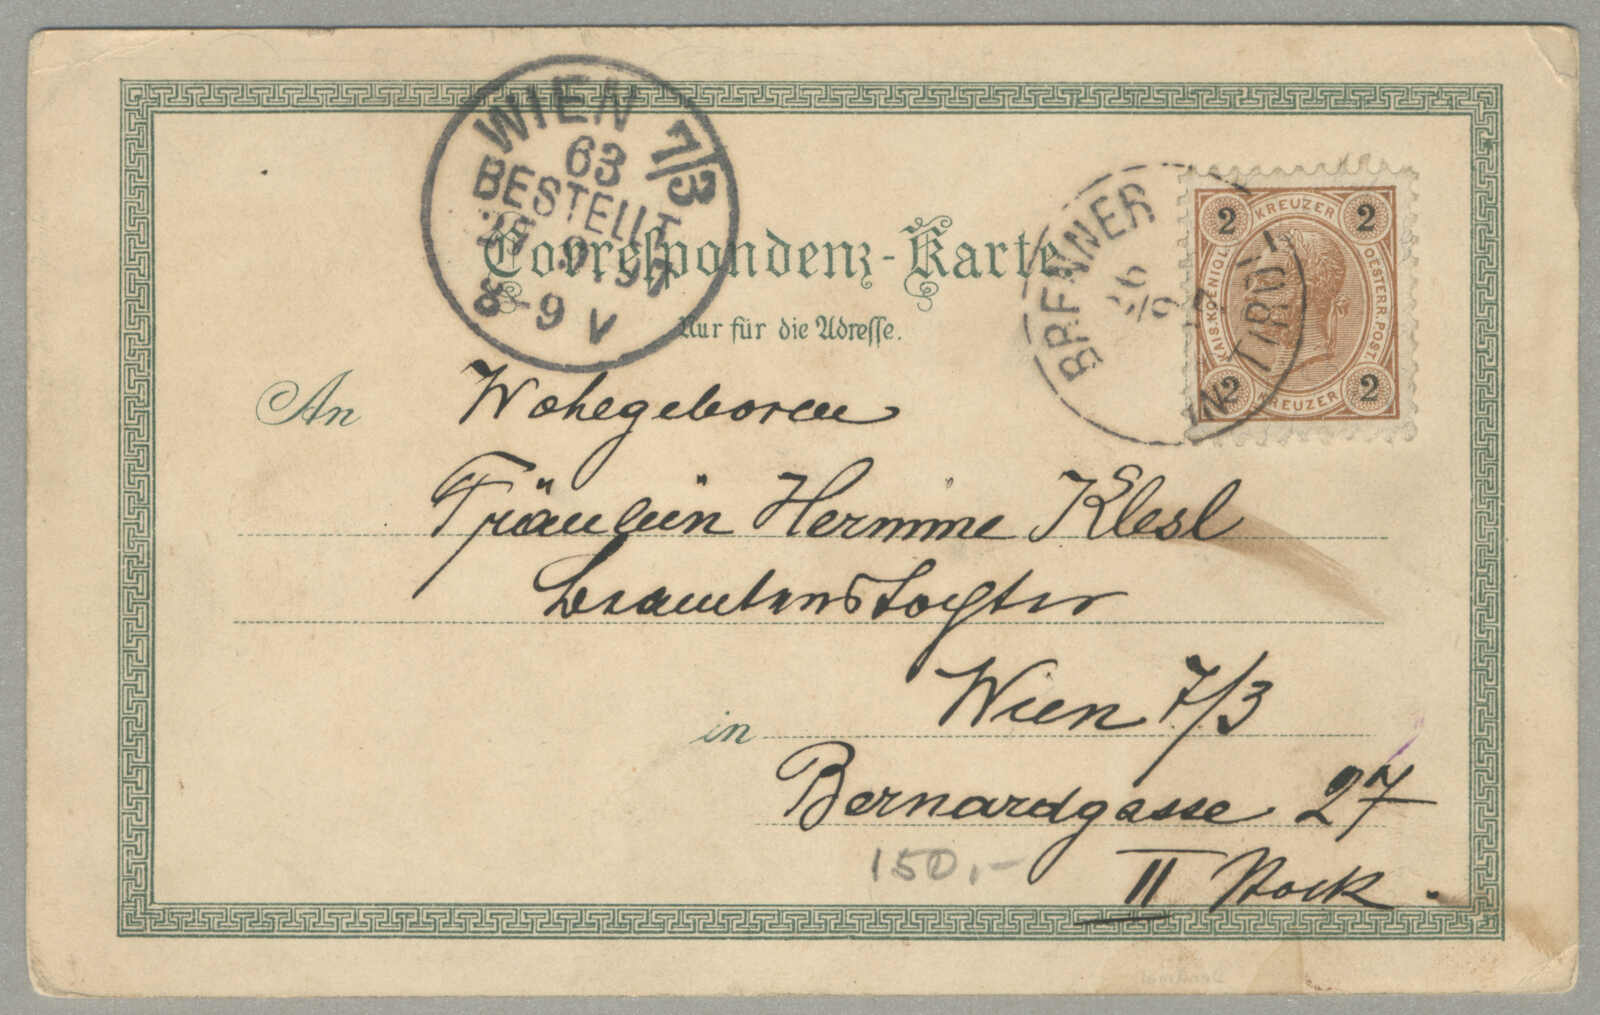 WIEN 7/3
63
BESTELLT
27. 9. 97
8-9 V
Correspondenz-Karte
Nur für die Adresse.
BRENNER IN TIROL
26
/9
KREUZER
2 2
KAIS. KOENIGL.
OESTERR. POST.
2 2
KREUZER
An Wohlgeboren
Fräulein Hermine Klesl
Beamtenstochter
in Wien 7/3
Bernardgasse 27
150,-
II Stock.